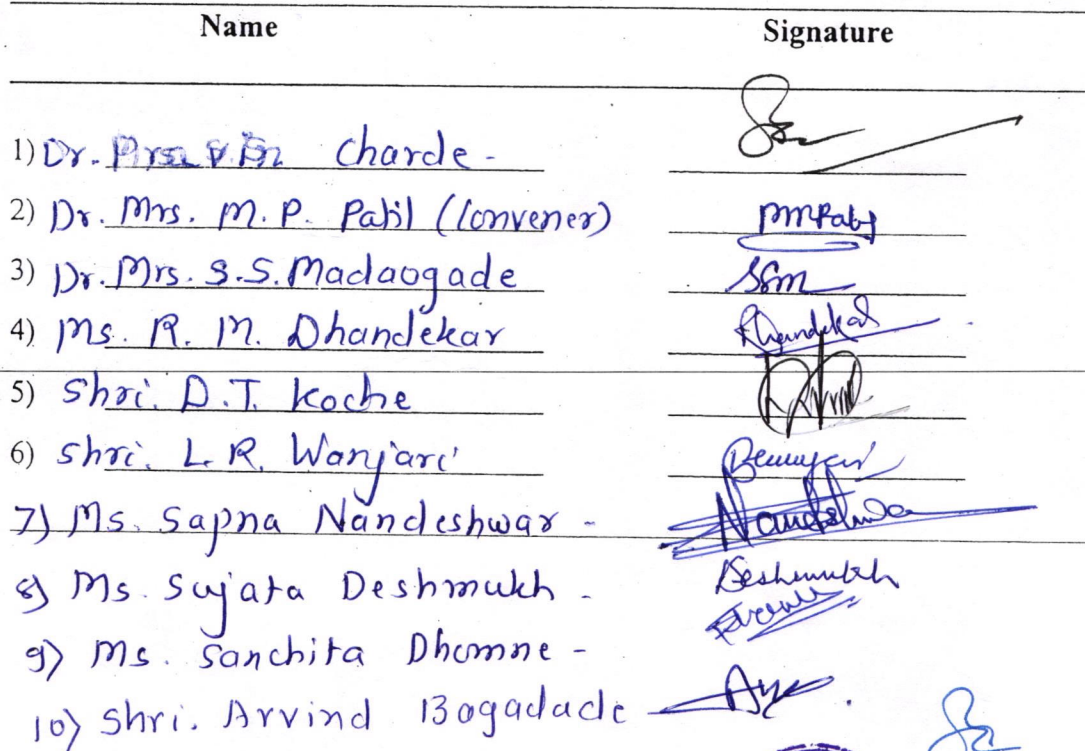 Name Signature
1) Dr. Pravin Charde -
2) Dr. Mrs. M. P. Patil (Convener) PMPatil
3) Dr. Mrs. S. S. Madaogade SSM
4) Ms. R. M. Dhandekar
5) Shri. D.T. Koche
6) Shri. L. R. Wanjari
7) Ms. Sapna Nandeshwar -
8) Ms. Sujata Deshmukh - Deshmukh
9) Ms. Sanchita Dhomne -
10) Shri. Arvind Bogadade